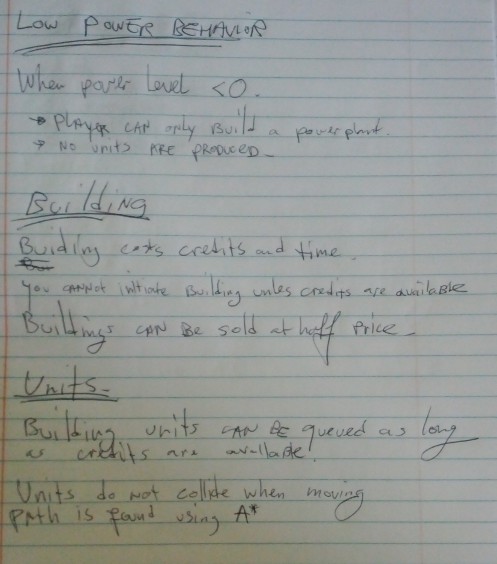 LOW POWER BEHAVIOR
When power level <0.
→ PLAYER CAN only Build a powerplant.
→ NO units ARE PRODUCED.
Building
Building costs credits and time.
you CANNOT initiate Building unles credits are available
Buildings CAN BE sold at half price.
Units.
Building units CAN BE queued as long
as credits are available.
Units do not collide when moving
path is found using A*